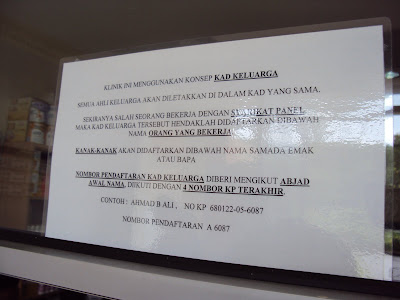 KLINIK INI MENGGUNAKAN KONSEP KAD KELUARGA
SEMUA AHLI KELUARGA AKAN DILETAKKAN DI DALAM KAD YANG SAMA.
SEKIRANYA SALAH SEORANG BEKERJA DENGAN SYARIKAT PANEL,
MAKA KAD KELUARGA TERSEBUT HENDAKLAH DIDAFTARKAN DIBAWAH
NAMA ORANG YANG BEKERJA.
KANAK-KANAK AKAN DIDAFTARKAN DIBAWAH NAMA SAMADA EMAK
ATAU BAPA
NOMBOR PENDAFTARAN KAD KELUARGA DIBERI MENGIKUT ABJAD
AWAL NAMA, DIIKUTI DENGAN 4 NOMBOR KP TERAKHIR.
CONTOH : AHMAD B ALI , NO KP 680122-05-6087
NOMBOR PENDAFTARAN A 6087